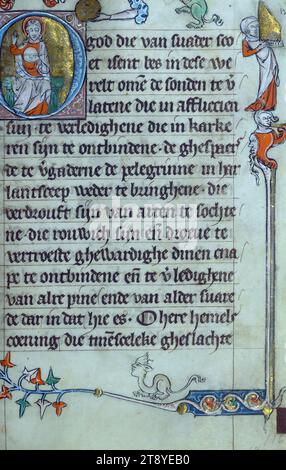 O god die van suader sco
et isent bes in dese we
relt om e de sonden te v̄
latene die in afflictien
sijn · te verledighene die in karke
ren sijn te ontbindene · de ghespaer
de te v̄gaderne de pelegrinne in har
lantsceep weder te bringhene · die
verdrouft sijn van atten te sochte
ne · die rouwich sijn en̄ droeue te
vertroeste ghewardighe dinen cna
pe te ontbindene en̄ te v̄ledighene
van alre pine ende van alder suare
de dar in dat hie es · O here hemels
coening die tmēsceleke gheslachte
alamy
2T8YEB0